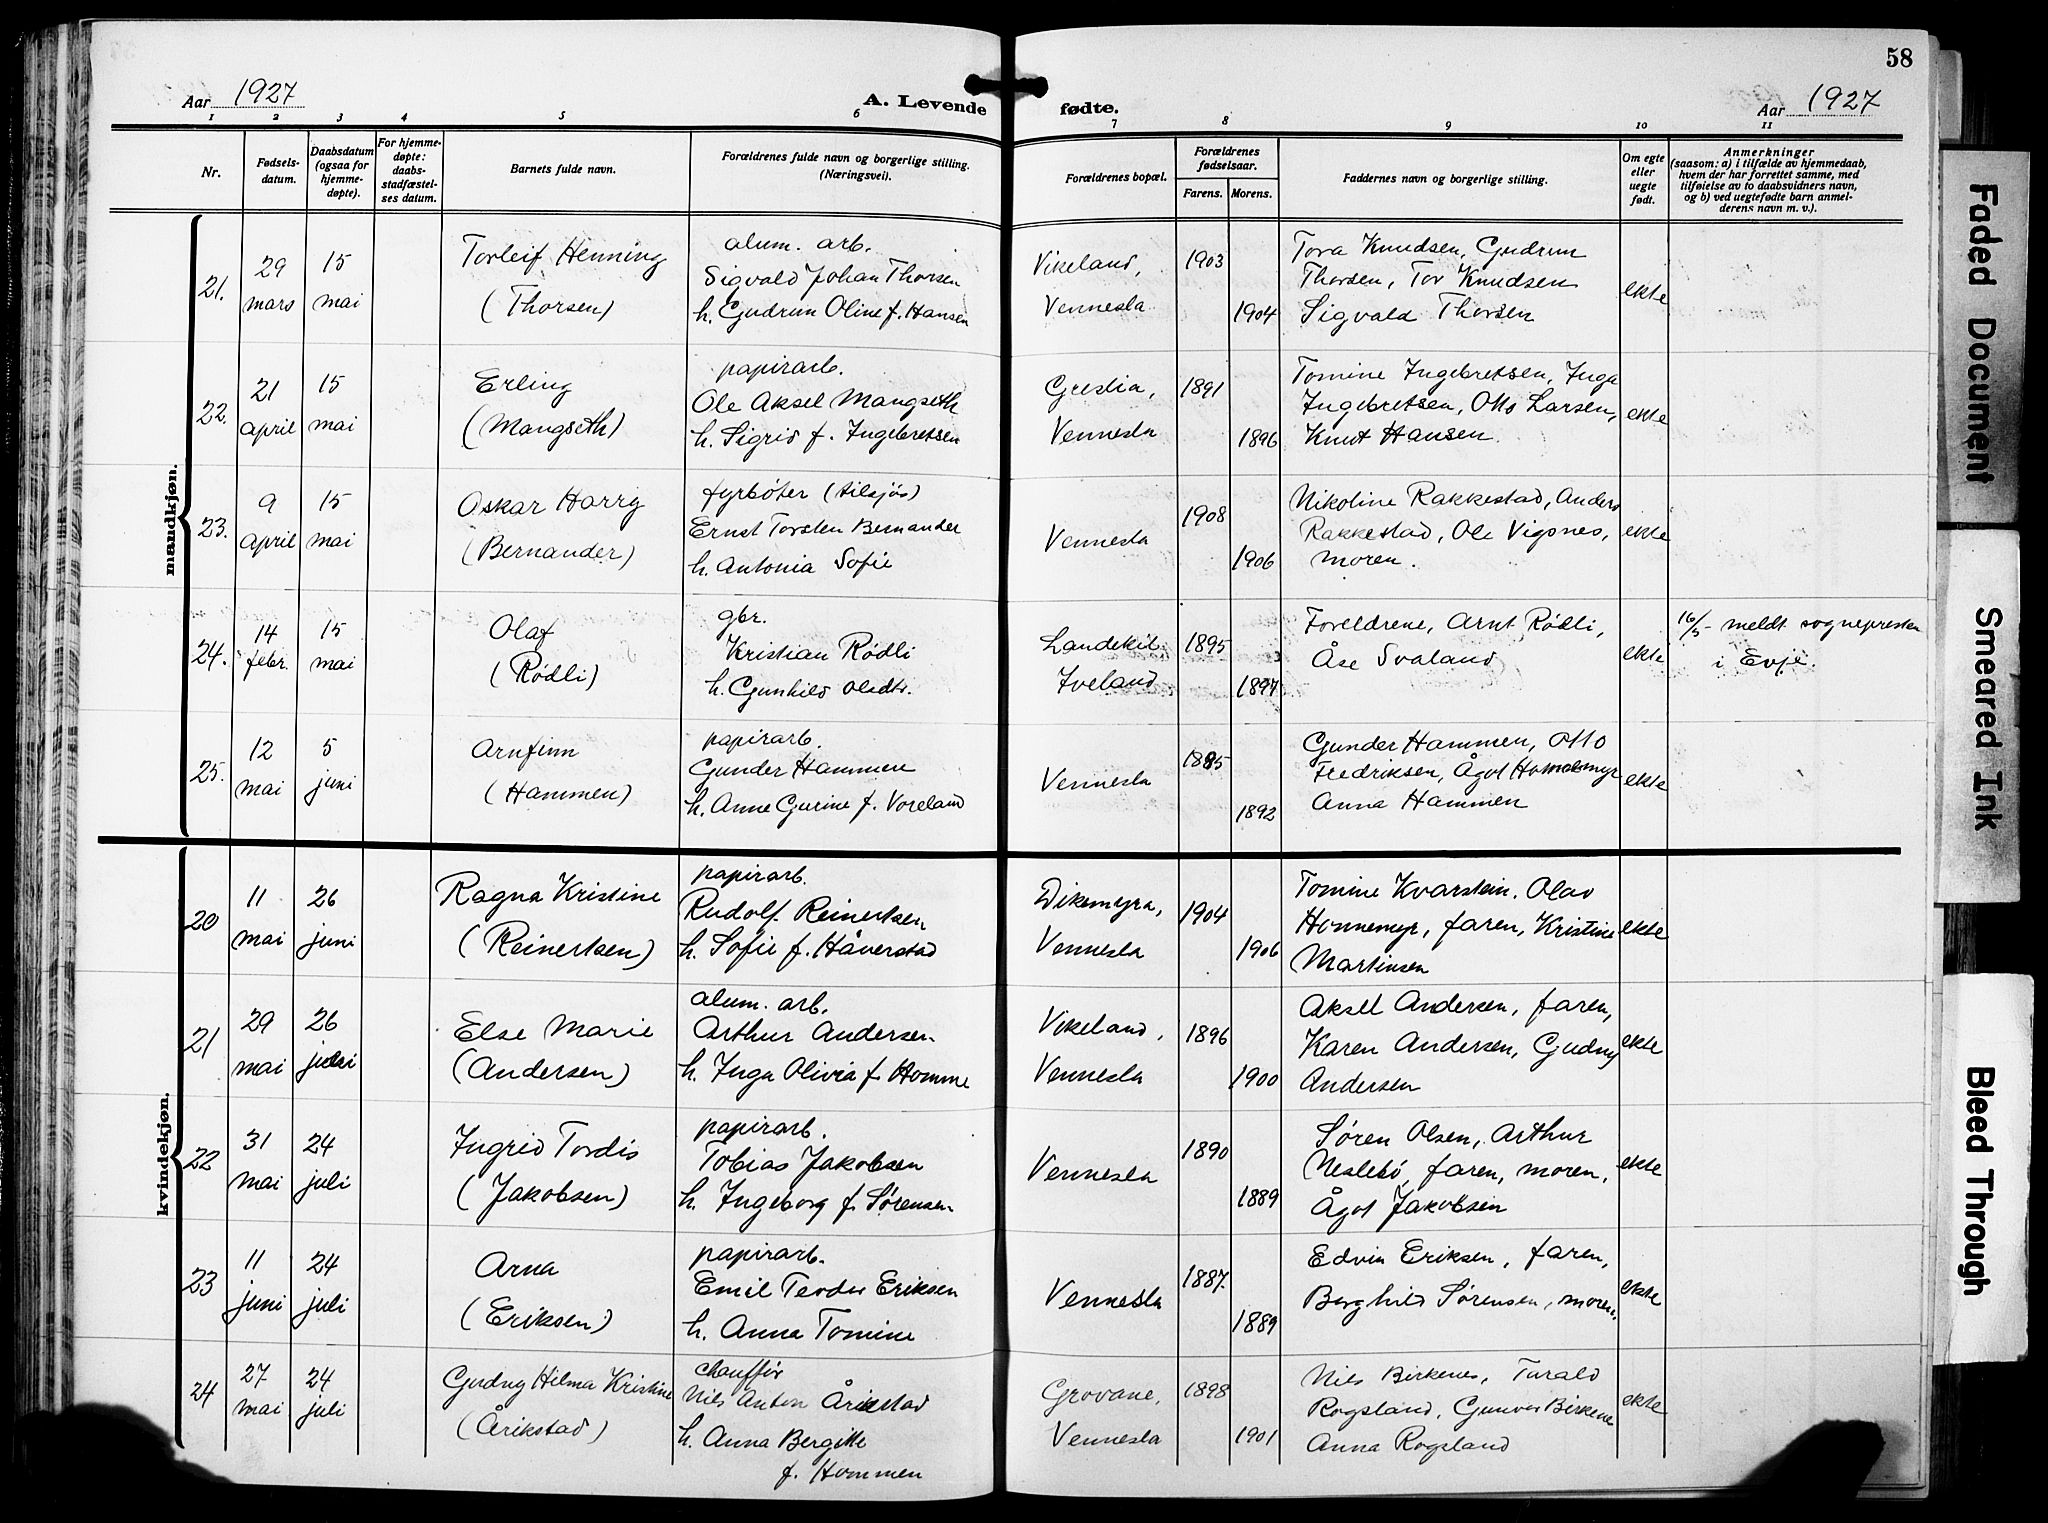 58
Aar 1927
A. Levende
fødte.
Aar 1927
1 2 3 4 5 6 7 8 9 10 11
Nr.
Fødsels-
datum.
Daabsdatum
(ogsaa for
hjemme-
døpte).
For hjemme-
døpte:
daabs-
stadfæstel-
ses datum.
Barnets fulde navn.
Forældrenes fulde navn og borgerlige stilling.
(Næringsvei).
Forældrenes bopæl.
Forældrenes
fødselsaar.
Farens. Morens.
Faddernes navn og borgerlige stilling.
Om egte
eller
uegte
født.
Anmerkninger
(saasom: a) i tilfælde av hjemmedaab,
hvem der har forrettet samme, med
tilføielse av to daabsvidners navn,
og b) ved uegtefødte barn anmel-
derens navn m. v.).
mandkjøn.
21.
29
mars
15
mai
Torleif Henning
(Thorsen)
alum. arb.
Sigvald Johan Thorsen
h. Gudrun Oline f. Hansen
Vikeland,
Vennesla
1903
1904
Tora Knudsen, Gudrun
Thorsen, Tor Knudsen
Sigvald Thorsen
ekte
22.
21
april
15
mai
Erling
(Mangseth)
papirarb.
Ole Aksel Mangseth
h. Sigrid f. Ingebretsen
Greslia,
Vennesla
1891
1896
Tomine Ingebretsen, Inga
Ingebretsen, Otto Larsen,
Knut Hansen.
ekte
23.
9
april
15
mai
Oskar Harry
(Bernander)
fyrbøter (tilsjøs)
Ernst Torsten Bernander
h. Antonia Sofie
Vennesla
1908
1906
Nikoline Rakkestad, Anders
Rakkestad, Ole Vigsnes,
moren.
ekte
24.
14
febr.
15
mai
Olaf
(Rødli)
gbr.
Kristian Rødli
h. Gunhild Olsdtr.
Landekil
Iveland
1895
1897
Foreldrene, Arnt Rødli,
Åse Svaland
ekte
16/5 - meldt sognepresten
i Evje.
25.
12
mai
5
juni
Arnfinn
(Hammen)
papirarb.
Gunder Hammen
h. Anne Gurine f. Voreland
Vennesla
1895
1892
Gunder Hammen, Otto
Fredriksen, Ågot
Anna Hammen
ekte
kvindekjøn.
20
11
mai
26
juni
Ragna Kristine
(Reinertsen)
papirarb.
Rudolf Reinertsen
h. Sofie f. Håverstad
Dikemyra,
Vennesla
1904
1906
Tomine Kvarstein. Olav
Honnemyr, faren, Kristine
Martinsen
ekte
21
29
mai
26
juni
Else Marie
(Andersen)
alum. arb.
Arthur Andersen
h. Inga Olivia f. Homme
Vikeland,
Vennesla
1896
1900
Aksel Andersen, faren,
Karen Andersen, Gudny
Andersen
ekte
22
31
mai
24
juli
Ingrid Tordis
(Jakobsen)
papirarb.
Tobias Jakobsen
h. Ingeborg f. Sørensen
Vennesla
1890
1889
Søren Olsen, Arthur
Neslebø, faren, moren,
Ågot Jakobsen
ekte
23
11
juni
24
juli
Arna
(Eriksen)
papirarb.
Emil Teodor Eriksen
h. Anna Tomine
Vennesla
1887.
1889
Edvin Eriksen, faren,
Borghild Sørensen, moren.
ekte
24
27
mai
24
juli
Gudny Hilma Kristine
(Årikstad)
chauffør
Nils Anton Årikstad
h. Anna Bergitte
f. Hommen
Grovane,
Vennesla
1898
1901
Nils Birkenes, Turald
Rogsland, Gunvor Birkene
Anna Rogsland
ekte
Faded Document
Smeared Ink
Bleed Through